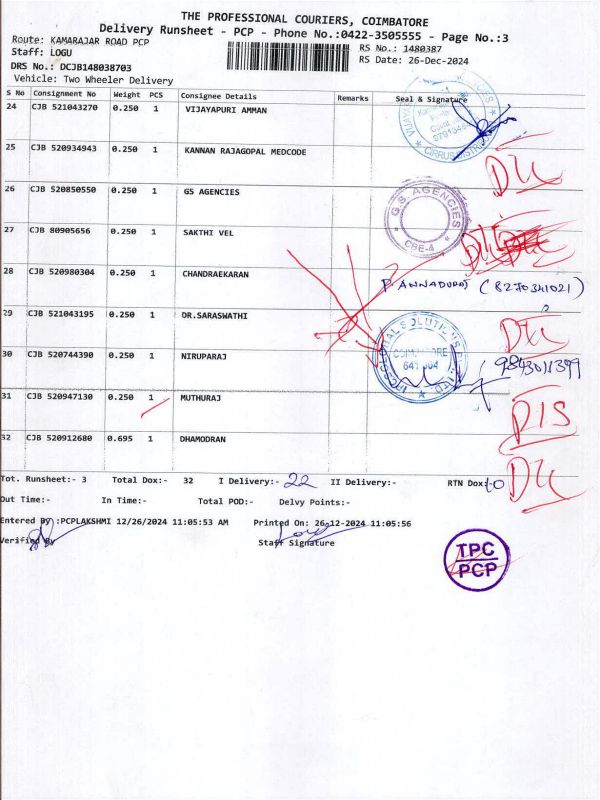 THE PROFESSIONAL COURIERS, COIMBATORE
Delivery Runsheet - PCP - Phone No.:0422-3505555 - Page No.:3
Route: KAMARAJAR ROAD PCP RS No.: 1480387
Staff: LOGU RS Date: 26-Dec-2024
DRS No.: DCJB148038703
Vehicle: Two Wheeler Delivery
S No Consignment No Weight PCS Consignee Details Remarks Seal & Signature
24 CJB 521043270 0.250 1 VIJAYAPURI AMMAN
CIRRUS DISTRIB
25 CJB 520934943 0.250 1 KANNAN RAJAGOPAL MEDCODE DLL
26 CJB 520850550 0.250 1 GS AGENCIES G.S. AGENCIES CBE-4
27 CJB 80905656 0.250 1 SAKTHI VEL
28 CJB 520980304 0.250 1 CHANDRAEKARAN P. ANNADURAJ (8270341021)
29 CJB 521043195 0.250 1 DR.SARASWATHI
30 CJB 520744390 0.250 1 NIRUPARAJ 9843011399
GLOBAL SOLUTIONS
COIMBATORE
641 004
31 CJB 520947130 0.250 1 MUTHURAJ DIS
32 CJB 520912680 0.695 1 DHAMODRAN DLL
Tot. Runsheet:- 3 Total Dox:- 32 I Delivery:- 22 II Delivery:- RTN Dox:- 10
Out Time:- In Time:- Total POD:- Delvy Points:-
Entered By :PCPLAKSHMI 12/26/2024 11:05:53 AM Printed On: 26-12-2024 11:05:56
Verified By Staff Signature
TPC
PCP